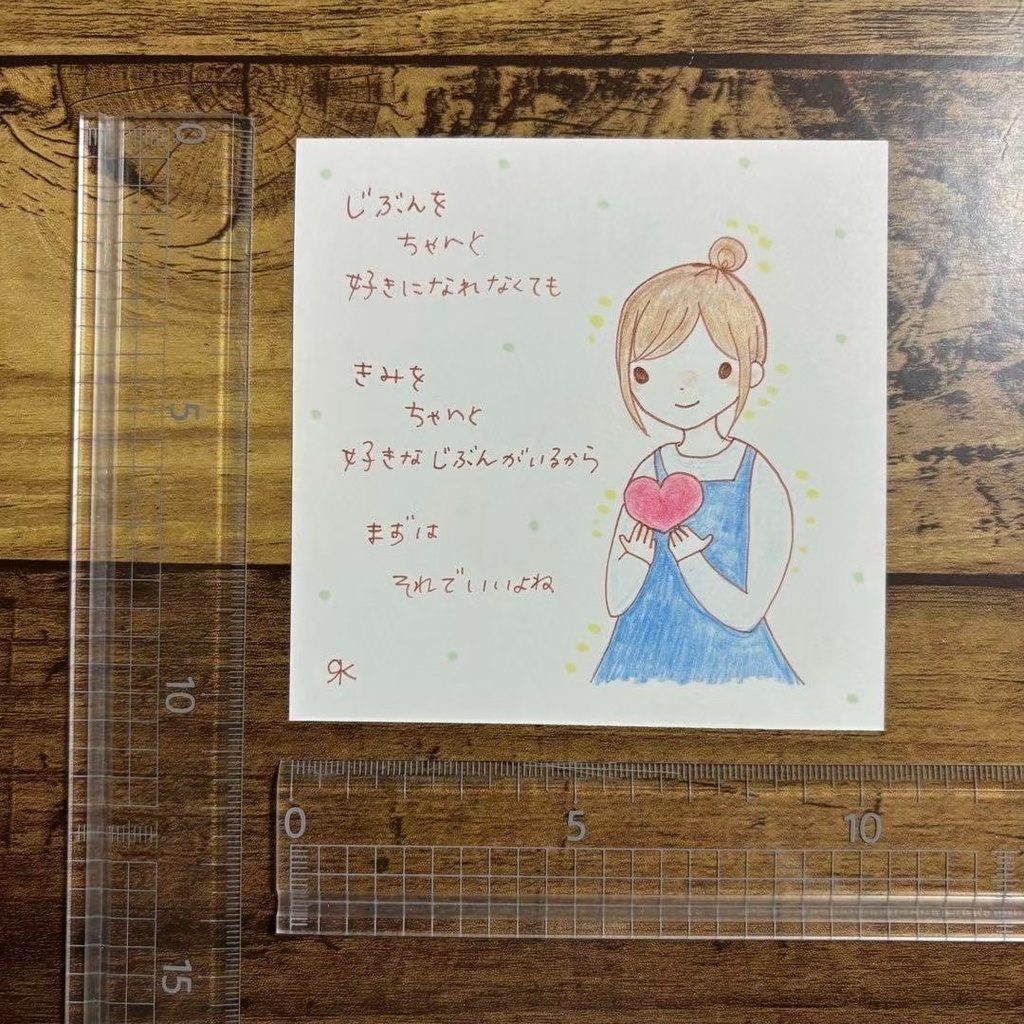 じぶんを
ちゃんと
好きになれなくても
きみを
ちゃんと
好きなじぶんがいるから
まずは
それでいいよね
0
5
10
15
0
5
10